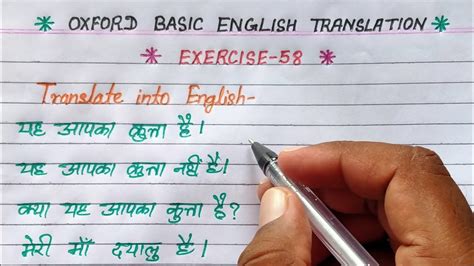 * OXFORD BASIC ENGLISH TRANSLATION *
* EXERCISE-58 *
Translate into English-
यह आपका कुत्ता है।
यह आपका कुत्ता नहीं है।
क्या यह आपका कुत्ता है?
मेरी माँ दयालु है।